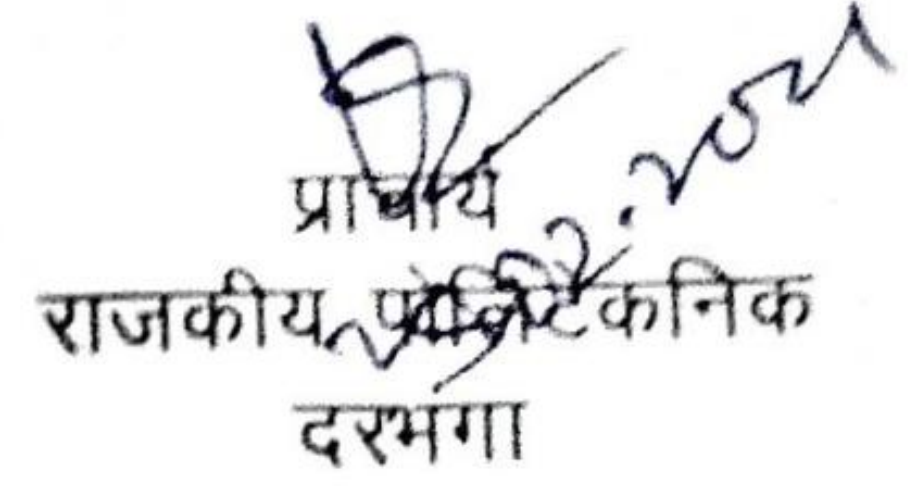 प्राचार्य
राजकीय पोलिटैकनिक
दरभंगा